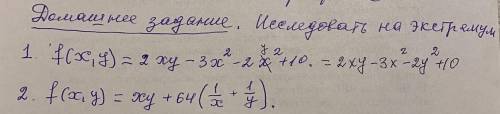 Домашнее задание. Исследовать на экстремум
1. f(x,y) = 2xy - 3x² - 2y² + 10. = 2xy - 3x² - 2y² + 10
2. f(x,y) = xy + 64(1/x + 1/y).